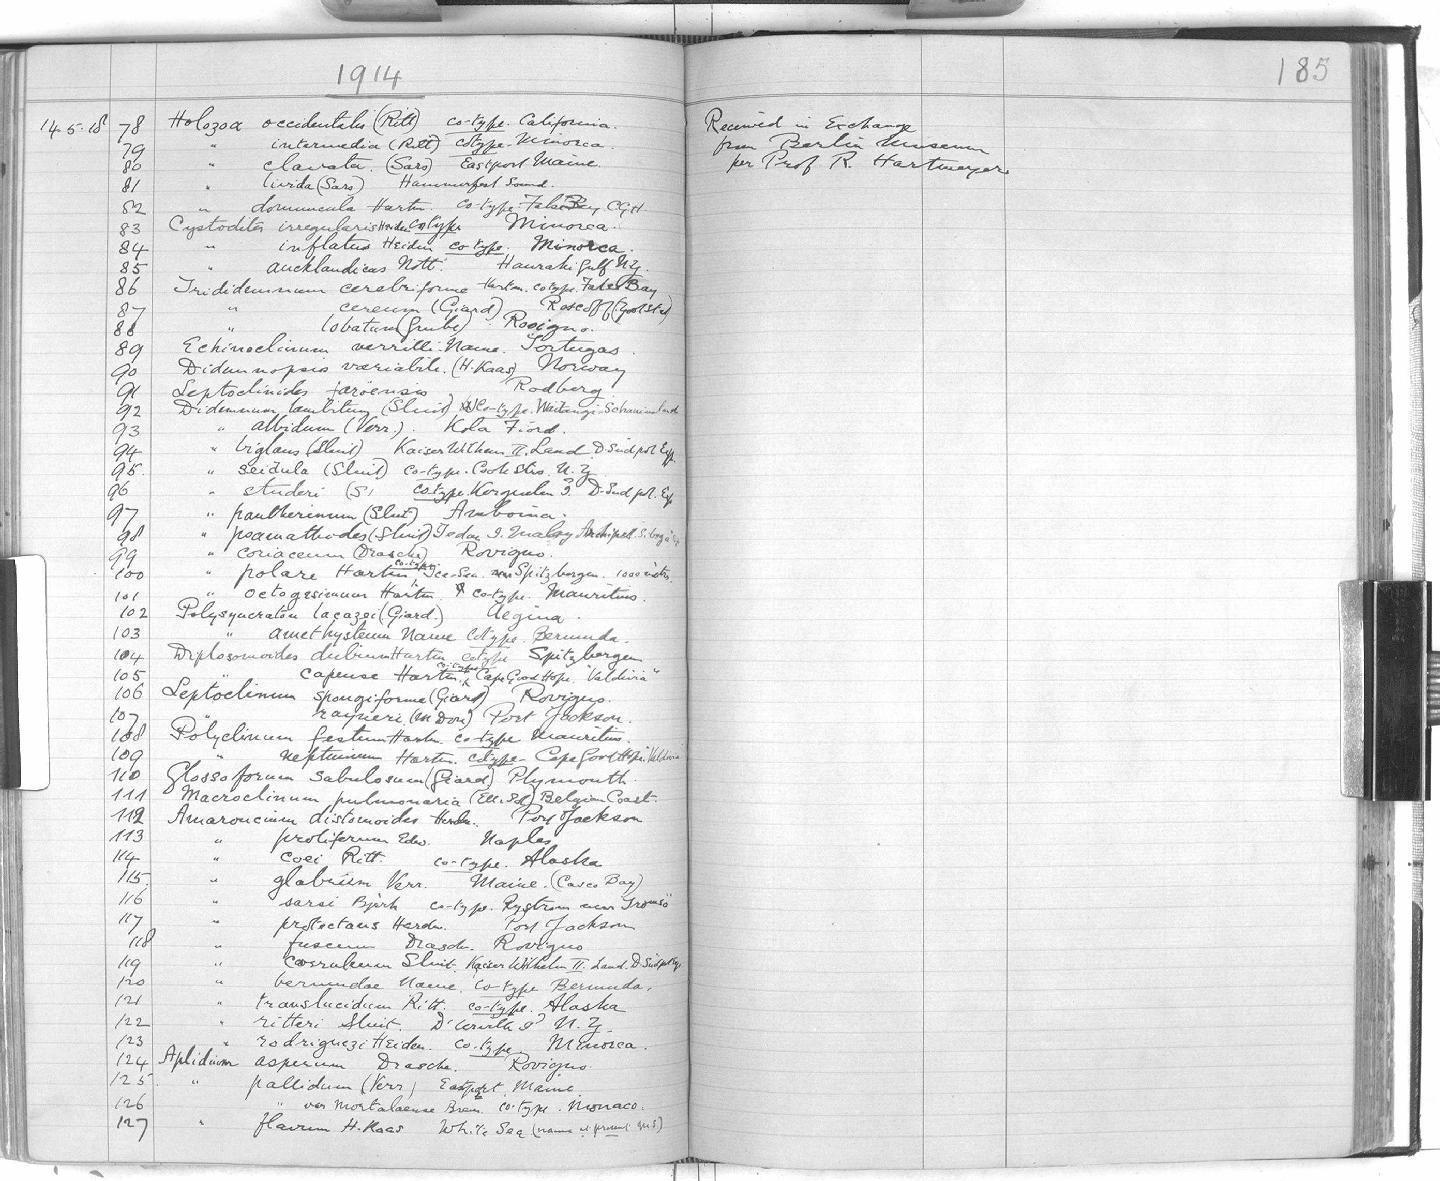 1914
185
14.5.18 78 Holozoa occidentalis (Ritt) co-type. California.
79 " intermedia (Ritt) cotype. Minorca.
80 " clavata (Sars) Eastport Maine.
81 " livida (Sars) Hammerfest Sound.
82 " domuncula Hartm. co-type. False Bay C.G.H.
83 Cystodites irregularis Heiden co-type Minorca.
84 " inflatus Heiden co-type. Minorca.
85 " aucklandicus Nott. Hauraki Gulf N.Z.
86 Trididemnum cerebriforme Hartm. cotype. False Bay
87 " cereum (Giard) Roscoff (Zool Stat)
88 " lobatum (Grube) Rovigno.
89 Echinoclinum verrilli Name. Tortugas.
90 Didemnopsis variabile. (H. Kaas) Norway
91 Leptoclinides faröensis Rodberg.
92 Didemnum lambitum (Sluit) co-type. Waitangi.
93 " albidum (Verr.). Kola Fiord.
94 " biglans (Sluit) Kaiser Wilhem II. Land. D. Südpol Exp.
95. " scidula (Sluit) co-type. Cook Strs. N.Z.
96 " studeri co-type. Kerguelen I. D. Südpol. Exp
97 " pantherinum (Sluit) Amboina.
98 " psamathodes (Sluit) I. Malay Archipell. Siboga Ex
99 " coriaceum (Drasche) Rovigno.
100 " polare Hartm co-type Ice-Sea. Spitzbergen. 1000 metrs.
101 " octogesimum Hartm. co-type. Mauritius.
102 Polysyncraton lacazei (Giard.) Aegina.
103 " amethysteum Name Cotype. Bermuda.
104 Diplosomoides dubium Hartm cotype Spitzbergen
105 " capense Hartm. co-type Cape Good Hope. "Valdivia"
106 Leptoclinum spongiforme (Giard) Rovigno.
107 " rayneri (McDon) Port Jackson.
108 Polyclinum festum Hartm. co-type Mauritius.
109 " neptunium Hartm. cotype - Cape Good Hope. "Valdivia"
110 Glossoforum sabulosum (Giard) Plymouth.
111 Macroclinum pulmonaria (Ell. Sol) Belgian Coast.
112 Amaroucium distomoides Herdm. Port Jackson
113 " proliferum Edw. Naples
114 " coei Ritt. co-type. Alaska
115. " glabrum Verr. Maine. (Casco Bay)
116 " sarsi Björk co-type. Rystrom near Tromsö
117 " protectans Herdm. Port Jackson
118 " fuscum Drasch. Rovigno
119 " caeruleum Sluit. Kaiser Wilhelm II. Land. D. Südpol Exp
120 " bermudae Name. Co-type Bermuda.
121 " translucidum Ritt. co-type. Alaska
122 " ritteri Sluit. D'Urville Id N.Z.
123 " rodriguezi Heiden. Co-type. Minorca.
124 Aplidium asperum Drasche. Rovigno.
125. " pallidum (Verr) Eastport Maine
126 " var Mortalaense Brem. co-type. Monaco.
127 " flavum H-Kaas White Sea (name at present M.S)
Received in Exchange
from Berlin Museum
per Prof R. Hartmeyer.